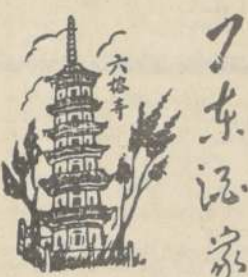 六榕寺
广东酒家